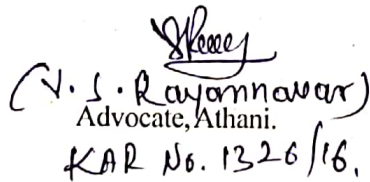 (V. S. Rayannavar)
Advocate, Athani.
KAR No. 1326/16.